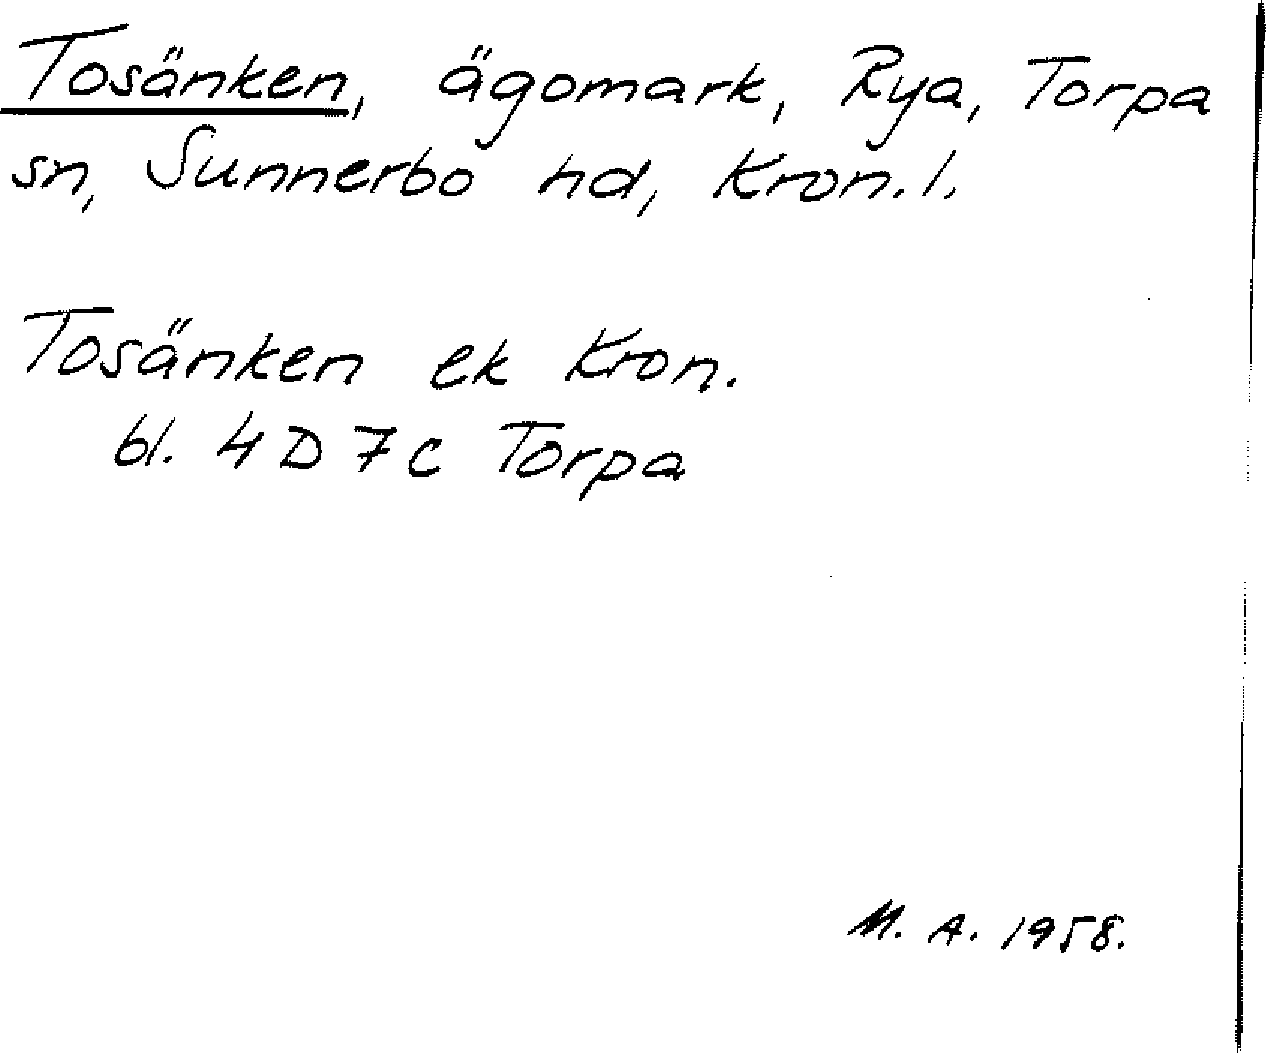 Tosänken, ägomark, Rya, Torpa
sn, Sunnerbo hd, Kron. l.
Tosänken ek Kron.
bl. 4 D 7 c Torpa
M. A. 1958.